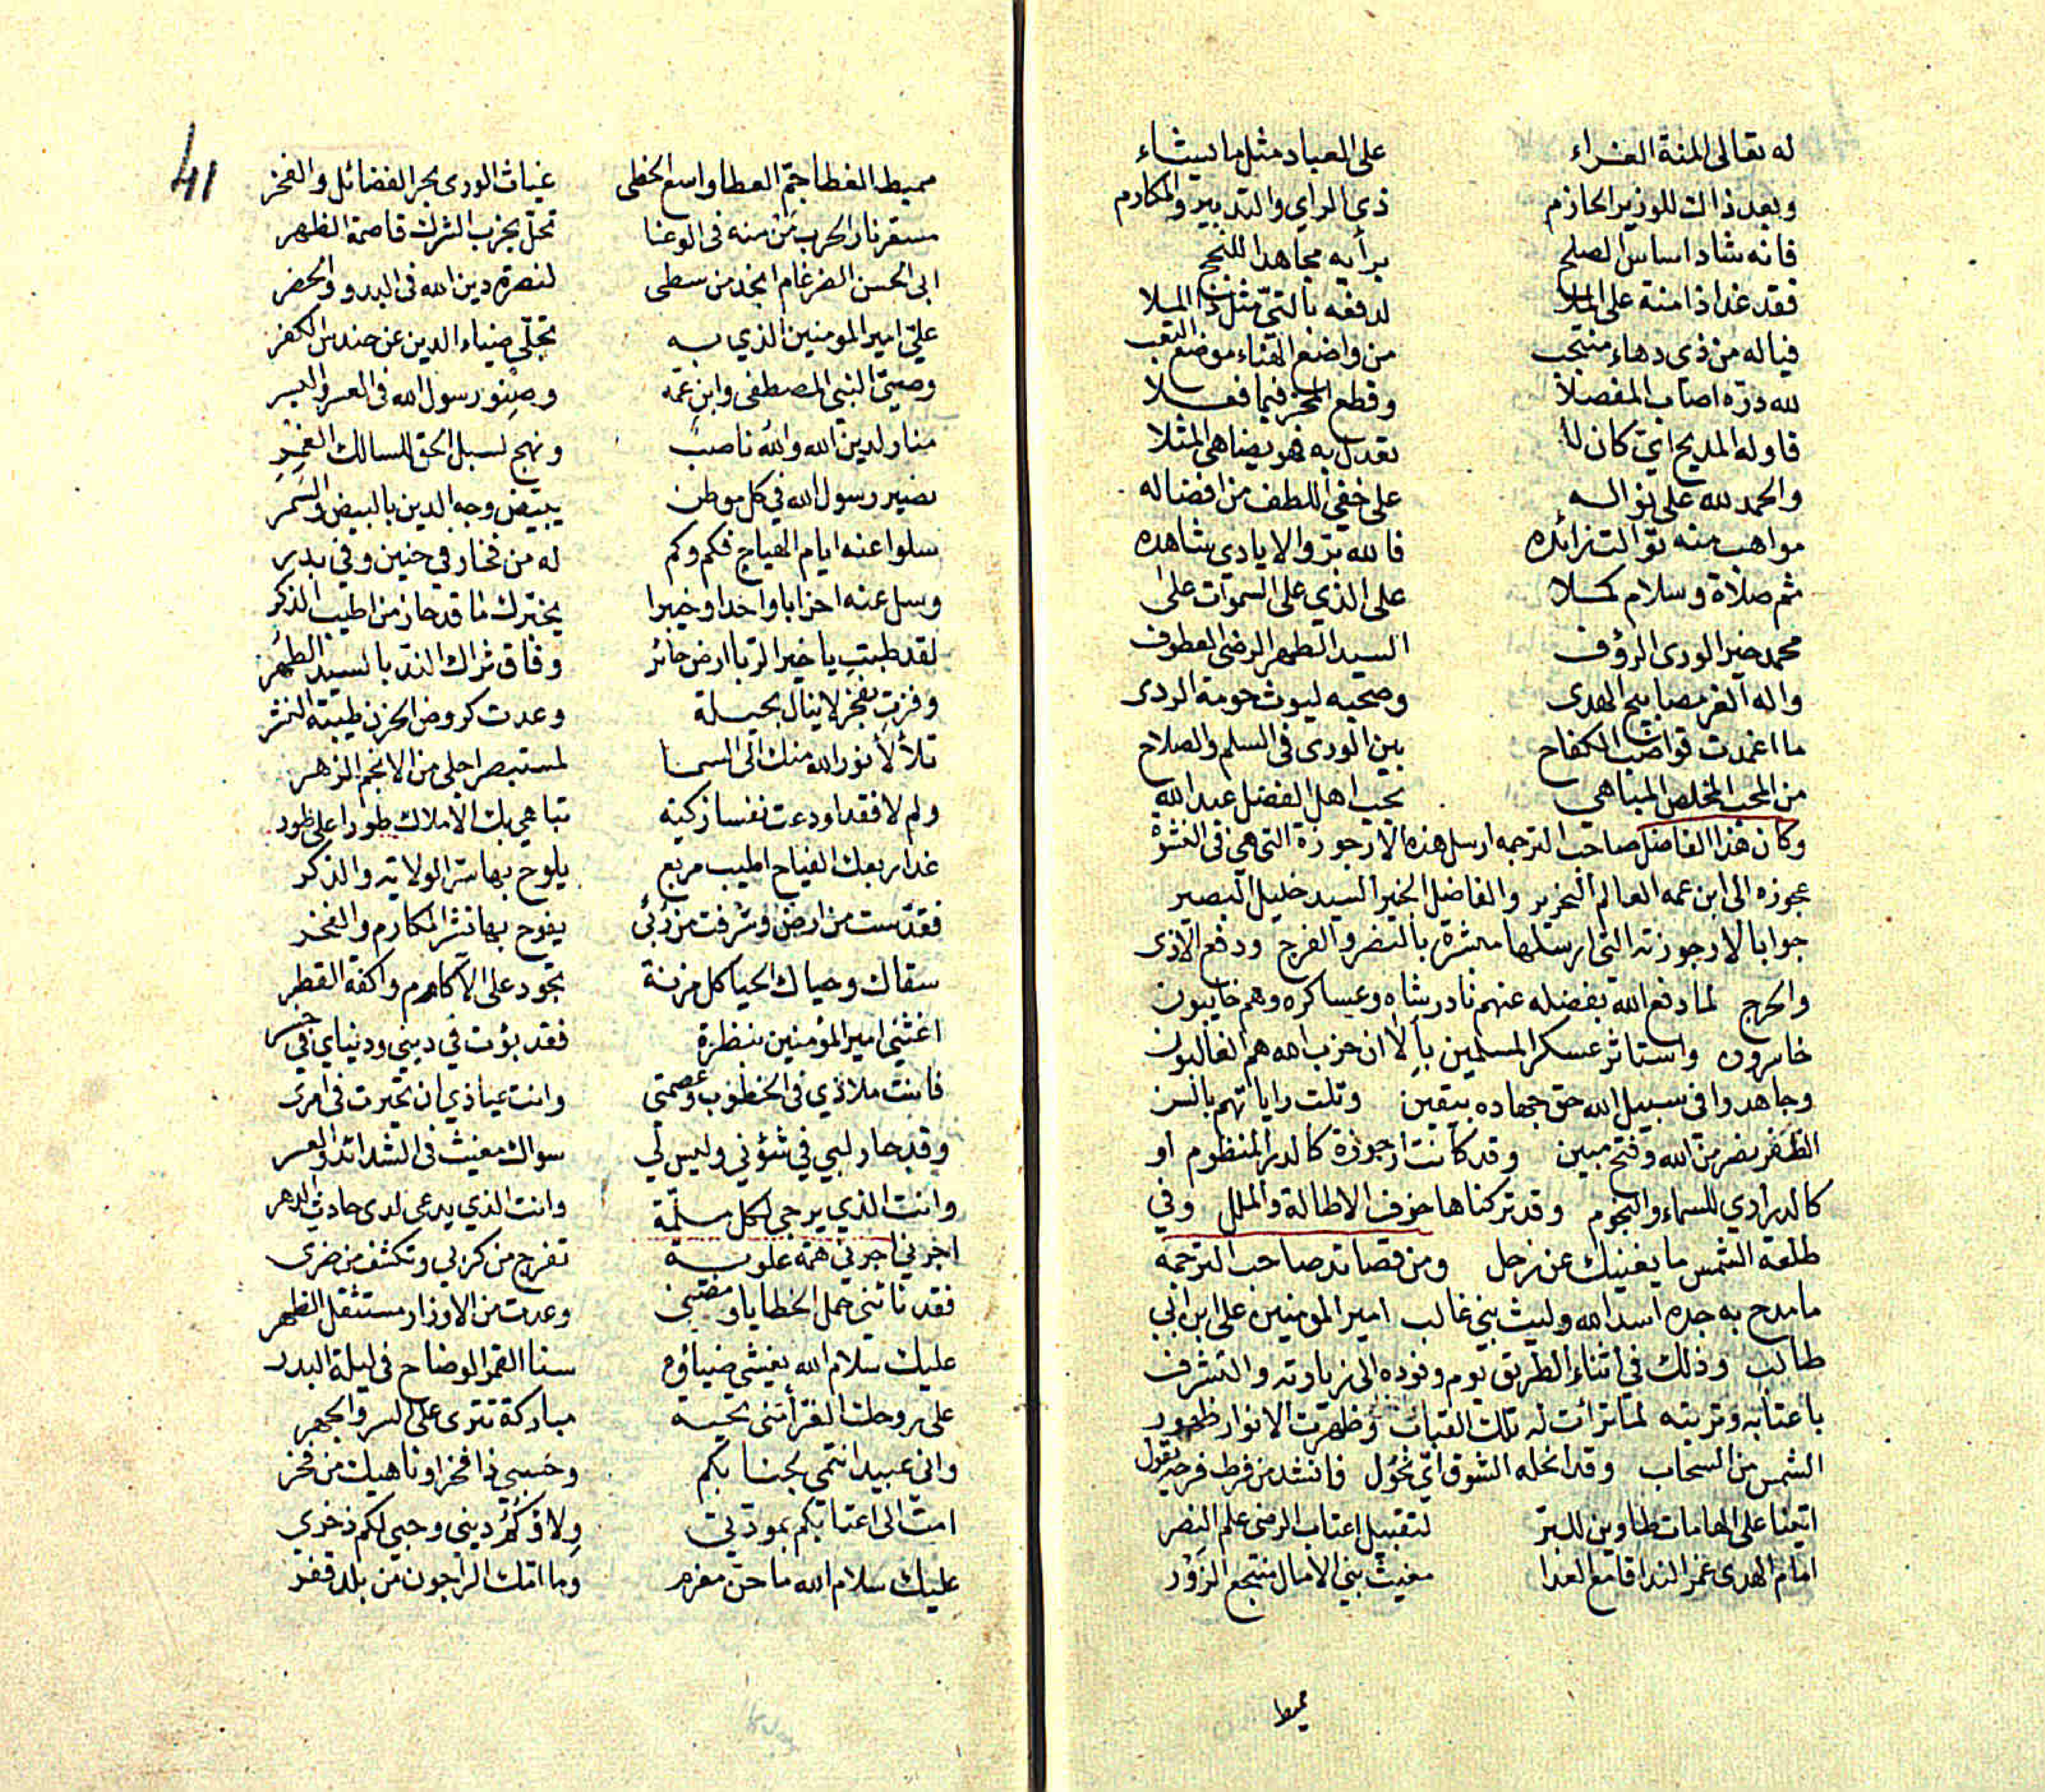 له تعالى المنة الغراء على العباد مثل ما يشاء
وبعد ذاك للوزير الحازم ذي الراي والتدبير والمكارم
فانه شاد اساس الصلح برأيه مجاهدا للنجح
فقد غدا ذا منة على الملا لدفعه بالتي مثل ذا البلا
فياله من ذي دهاء منتجب من واضع الهناء موضع النقب
لله دره اصاب المفصلا وقطع المحز فيما فعلا
فاوله المديح اي كان لا تعدل به فهو يضاهي المثلا
والحمد لله على نواله على خفي اللطف من افضاله
مواهب منه توالت زائده فالله بر والايادي شاهده
ثم صلاة وسلام كملا على الذي على السموات على
محمد خير الورى الرؤف السيد الطهر الرضى العطوف
واله الغر مصابيح الهدى وصحبه ليوث حومة الردى
ما اغمدت قواضب الكفاح بين الورى في السلم والصلاح
من المحب المخلص المباهي بحب اهل الفضل عبد الله
وكان هذا الفاضل صاحب الترجمه ارسل هذه الارجوزة التي هي في النشزة
عجوزه الى ابن عمه العالم النحرير والفاضل الخير السيد خليل البصير
جوابا لارجوزته التي ارسلها مبشرة بالنصر والفرج ودفع الاذى
والحرج لما دفع الله بفضله عنهم نادر شاه وعساكره وهم خايبون
خاسرون واستاثر عسكر المسلمين بالا ان حزب الله هم الغالبون
وجاهدوا في سبيل الله حق جهاده بيقين وتلت راياتهم بالسن
الظفر نصر من الله وفتح مبين وقد كانت ارجوزة كالدر المنظوم او
كالدراري للسماء والنجوم وقد تركناها خوف الاطالة والملل وفي
طلعة الشمس ما يغنيك عن زحل ومن قصائد صاحب الترجمه
ما مدح به جده اسد الله وليث بني غالب امير المومنين علي ابن ابي
طالب وذلك في اثناء الطريق يوم وفوده الى زيارته والتشرف
باعتابه وتربته لما تراءت له تلك القباب وظهرت الانوار ظهور
الشمس من السحاب وقد انحله الشوق اي نحول فانشد من فرط فرحه يقول
اتينا على الهامات طاوين للبر لتقبيل اعتاب الرضى علم النصر
امام الهدى غمر الندا قامع العدا مغيث بني الامال منتجع الزور
مميط
41
مميط الغطا جم العطا واسع الخطى غياث الورى بحر الفضائل والفخر
مسعر نار الحرب من منه في الوغا تحل بحزب الشرك قاصمة الظهر
ابي الحسن الضرغام انجد من سطى لنصرة دين الله في البدو والحضر
علي امير المومنين الذي به تجلى ضياء الدين عن حندس الكفر
وصي النبي المصطفى وابن عمه وصنو رسول الله في العسر واليسر
منار لدين الله والله ناصب ونهج لسبل الحق للسالك الغمر
نصير رسول الله في كل موطن يبيض وجه الدين بالبيض والسمر
سلوا عنه ايام الهياج فكم وكم له من فخار في حنين وفي بدر
وسل عنه احزابا واحدا وخيبرا يخبرك ما قد حاز من اطيب الذكر
لقد طبت يا خير الربا ارض حائر وفاق ثراك الند بالسيد الطهر
وفزت بفخر لا ينال بحيلة وعدت كروض الحزن طيبة النشر
تلألأ نور الله منك الى السما لمستبصر اجلى من الانجم الزهر
ولم لا فقد اودعت نفسا زكية تباهي بك الاملاك طورا على طور
غدا ربعك الفياح اطيب مربع يلوح بها سر الولاية والذكر
فقدست من ارض وشرفت من ربى يفوح بها نشر المكارم والفخر
سقاك وحياك الحيا كل مزنة تجود على الاكام واكفة القطر
اغثني امير المؤمنين بنظرة فقد بؤت في ديني ودنياي في خسر
فانت ملاذي في الخطوب وعصمتي وانت عياذي ان تحيرت في امري
وقد حار لبي في شؤني وليس لي سواك مغيث في الشدائد والعسر
وانت الذي يرجى لكل ملمة وانت الذي يدعى لدى حادث الدهر
اجرني اجرني همة علوية تفرج من كربي وتكشف من ضري
فقد نائني حمل الخطايا ومضني وعدت من الاوزار مستثقل الظهر
عليك سلام الله يغشى ضياؤه سنا القمر الوضاح في ليلة البدر
على روحك الغرأ تثنى تحية مباركة تترى على السر والجهر
واني عبيد انتمي لجنابكم وحسبي ذا فخرا وناهيك من فخر
امت الى اعتابكم بمودتي ولاؤكم ديني وحبي لكم ذخري
عليك سلام الله ما حن مغرم وما امك الراجون من بلد قفر